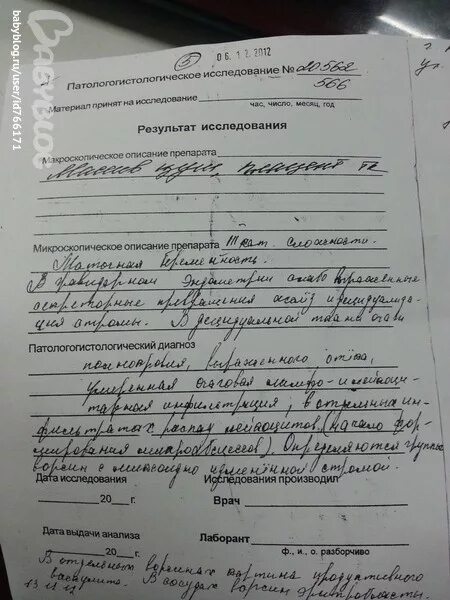 5
06.12.2012
Патологогистологическое исследование № 20562
566
Материал принят на исследование
час, число, месяц, год
Результат исследования
Макроскопическое описание препарата
плацент тк
Микроскопическое описание препарата III кат. сложности.
Маточная беременность.
В гравидарном эндометрии слабо выраженные
секреторные превращения желёз и децидуализа-
ция стромы. В децидуальной ткани очаги
Патологогистологический диагноз
полнокровия, выраженного отёка,
умеренная очаговая лимфо-и лейкоци-
тарная инфильтрация; в отдельных ин-
фильтратах распад лейкоцитов (начало фор-
мирования микроабсцессов). Определяются группы
ворсин с миксоидно изменённой стромой.
Дата исследования Исследования производил
20 г. Врач
Дата выдачи анализа Лаборант
20 г. ф., и., о. разборчиво
В отдельных ворсинах картина продуктивного
васкулита. В сосудах ворсин эритробласты.
13 12 12
babyblog.ru/user/id766171
BabyBlog